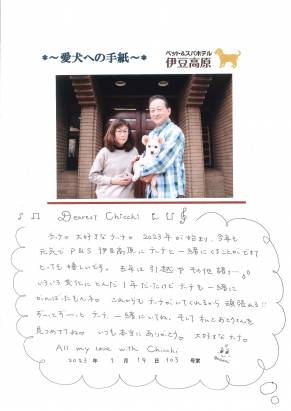 *～愛犬への手紙～*
ペット&スパホテル
伊豆高原
Dearest Chicchi
チッチ。大好きなチッチ。2023年が始まり、今年も
元気でP&S 伊豆高原にチッチと一緒にくることができて
とっても嬉しいです。去年は引越やその他諸々
いろいろ変化にとんだ1年だったけどチッチも一緒に
がんばったもんネ。これからもチッチがいてくれるから頑張れる!!
ずーっとずーっとチッチ、一緒にいてね。そして私とおとうさんを
見つめててね。いつも本当にありがとう。大好きなチッチ。
All my love with Chicchi
2023年1月19日103号室